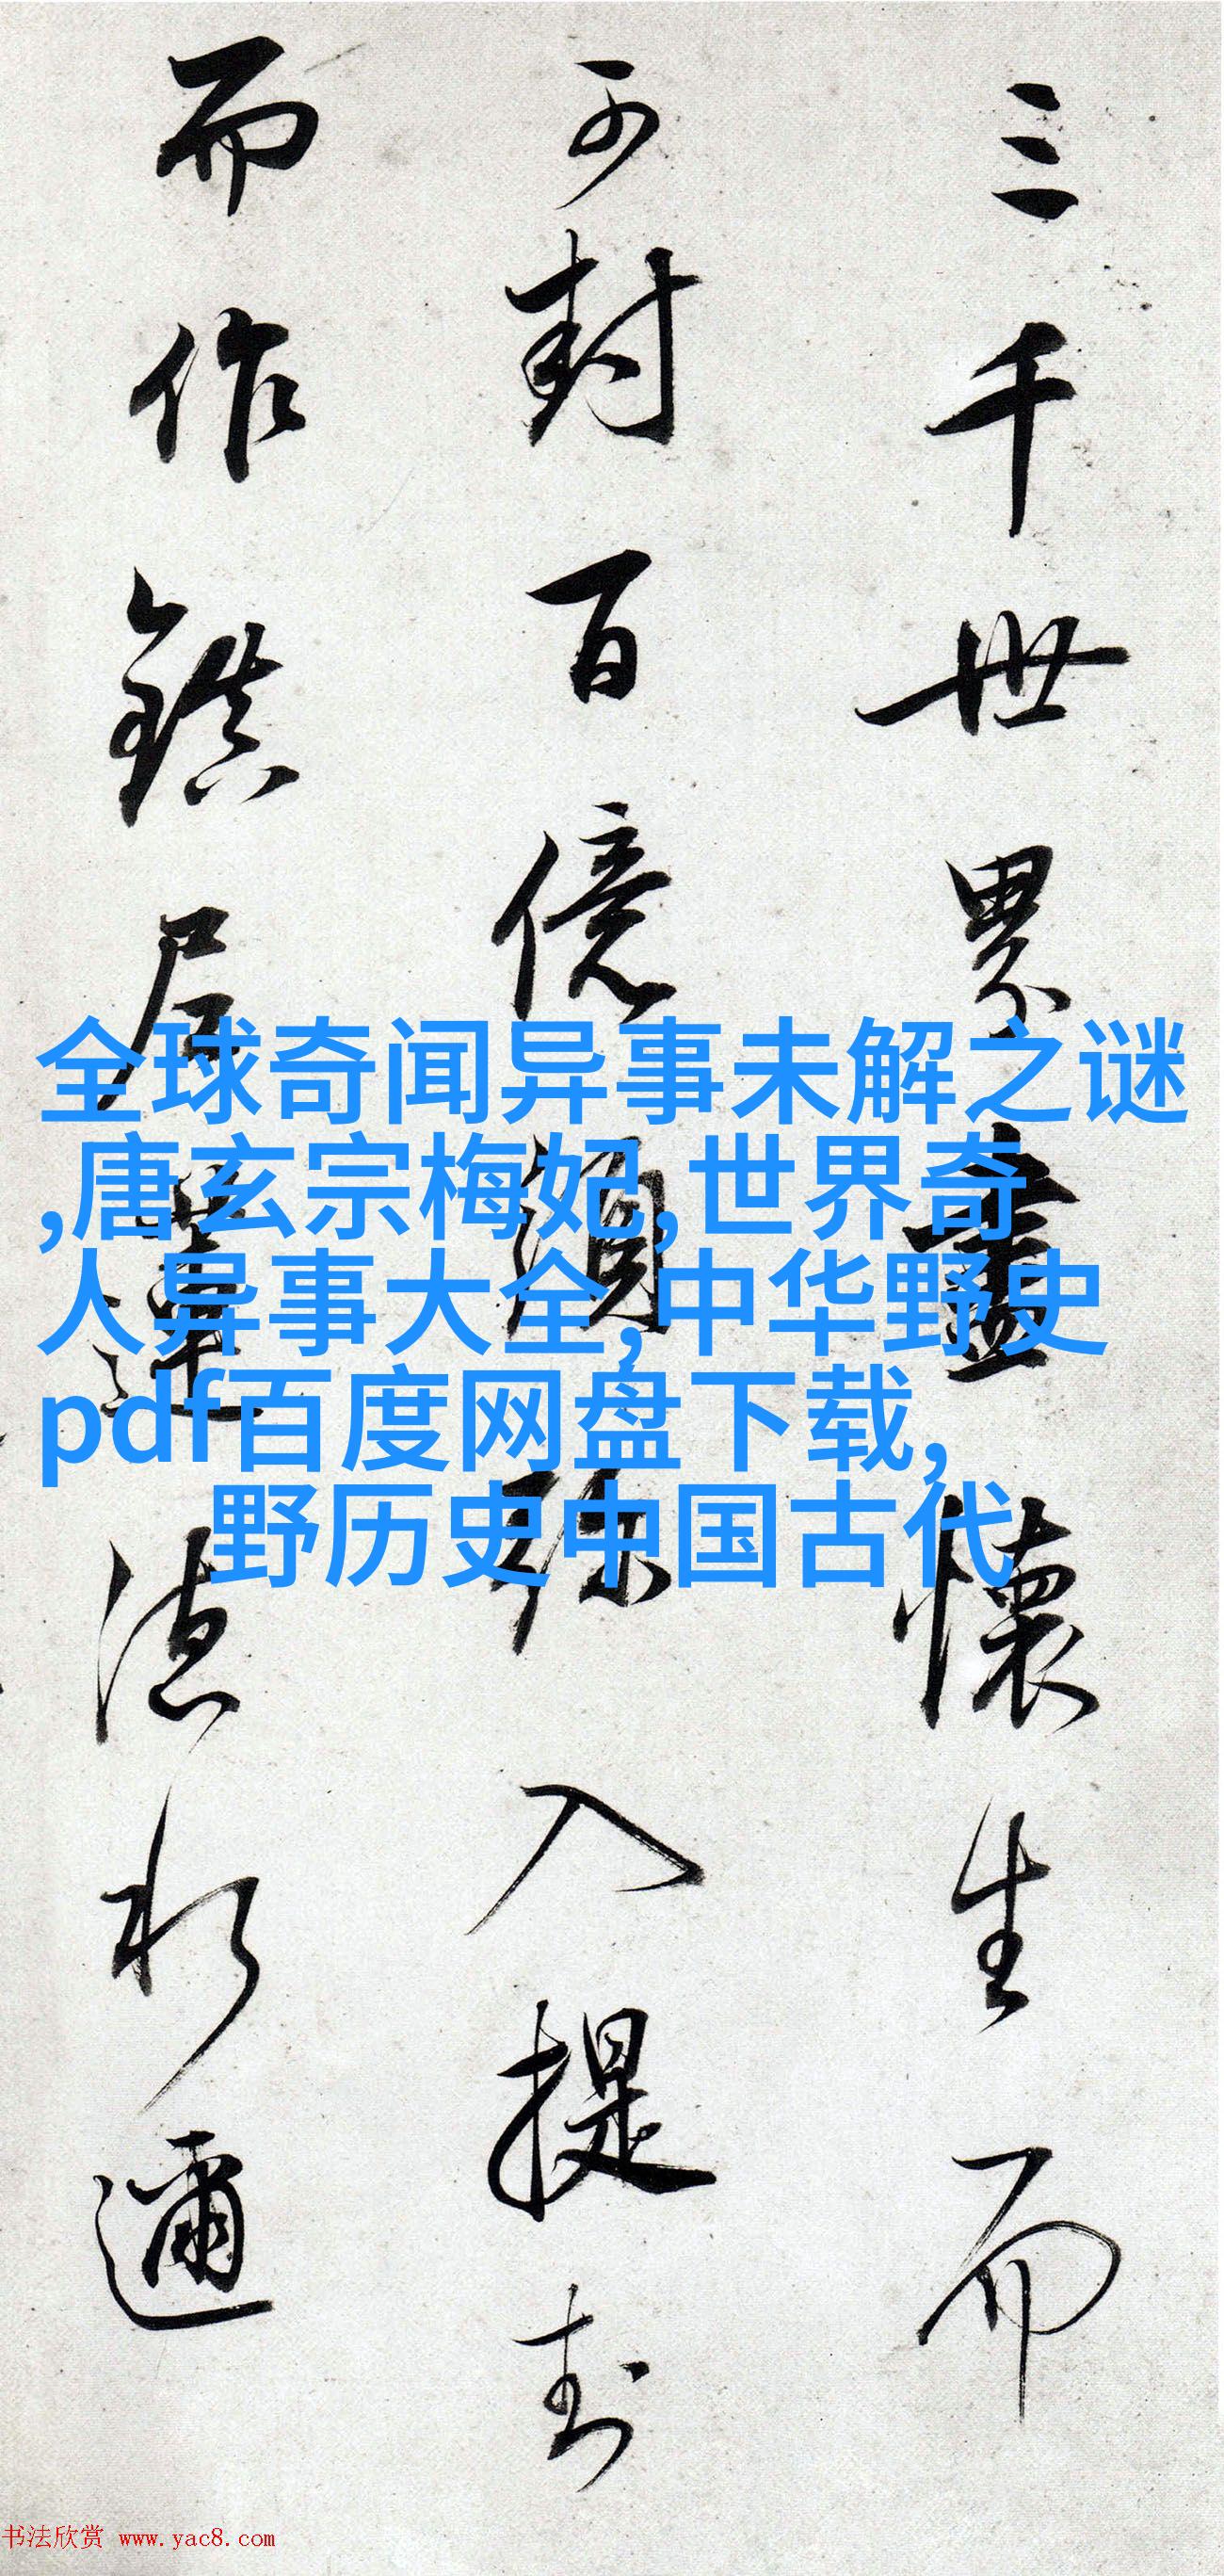 三千世界盡懷生而
可封百億須彌入提封
而作鎮尼蓮德水邇
全球奇闻异事未解之谜
,唐玄宗梅妃,世界奇
人异事大全,中华野史
pdf百度网盘下载,
野历史中国古代
书法欣赏 www.yac8.com